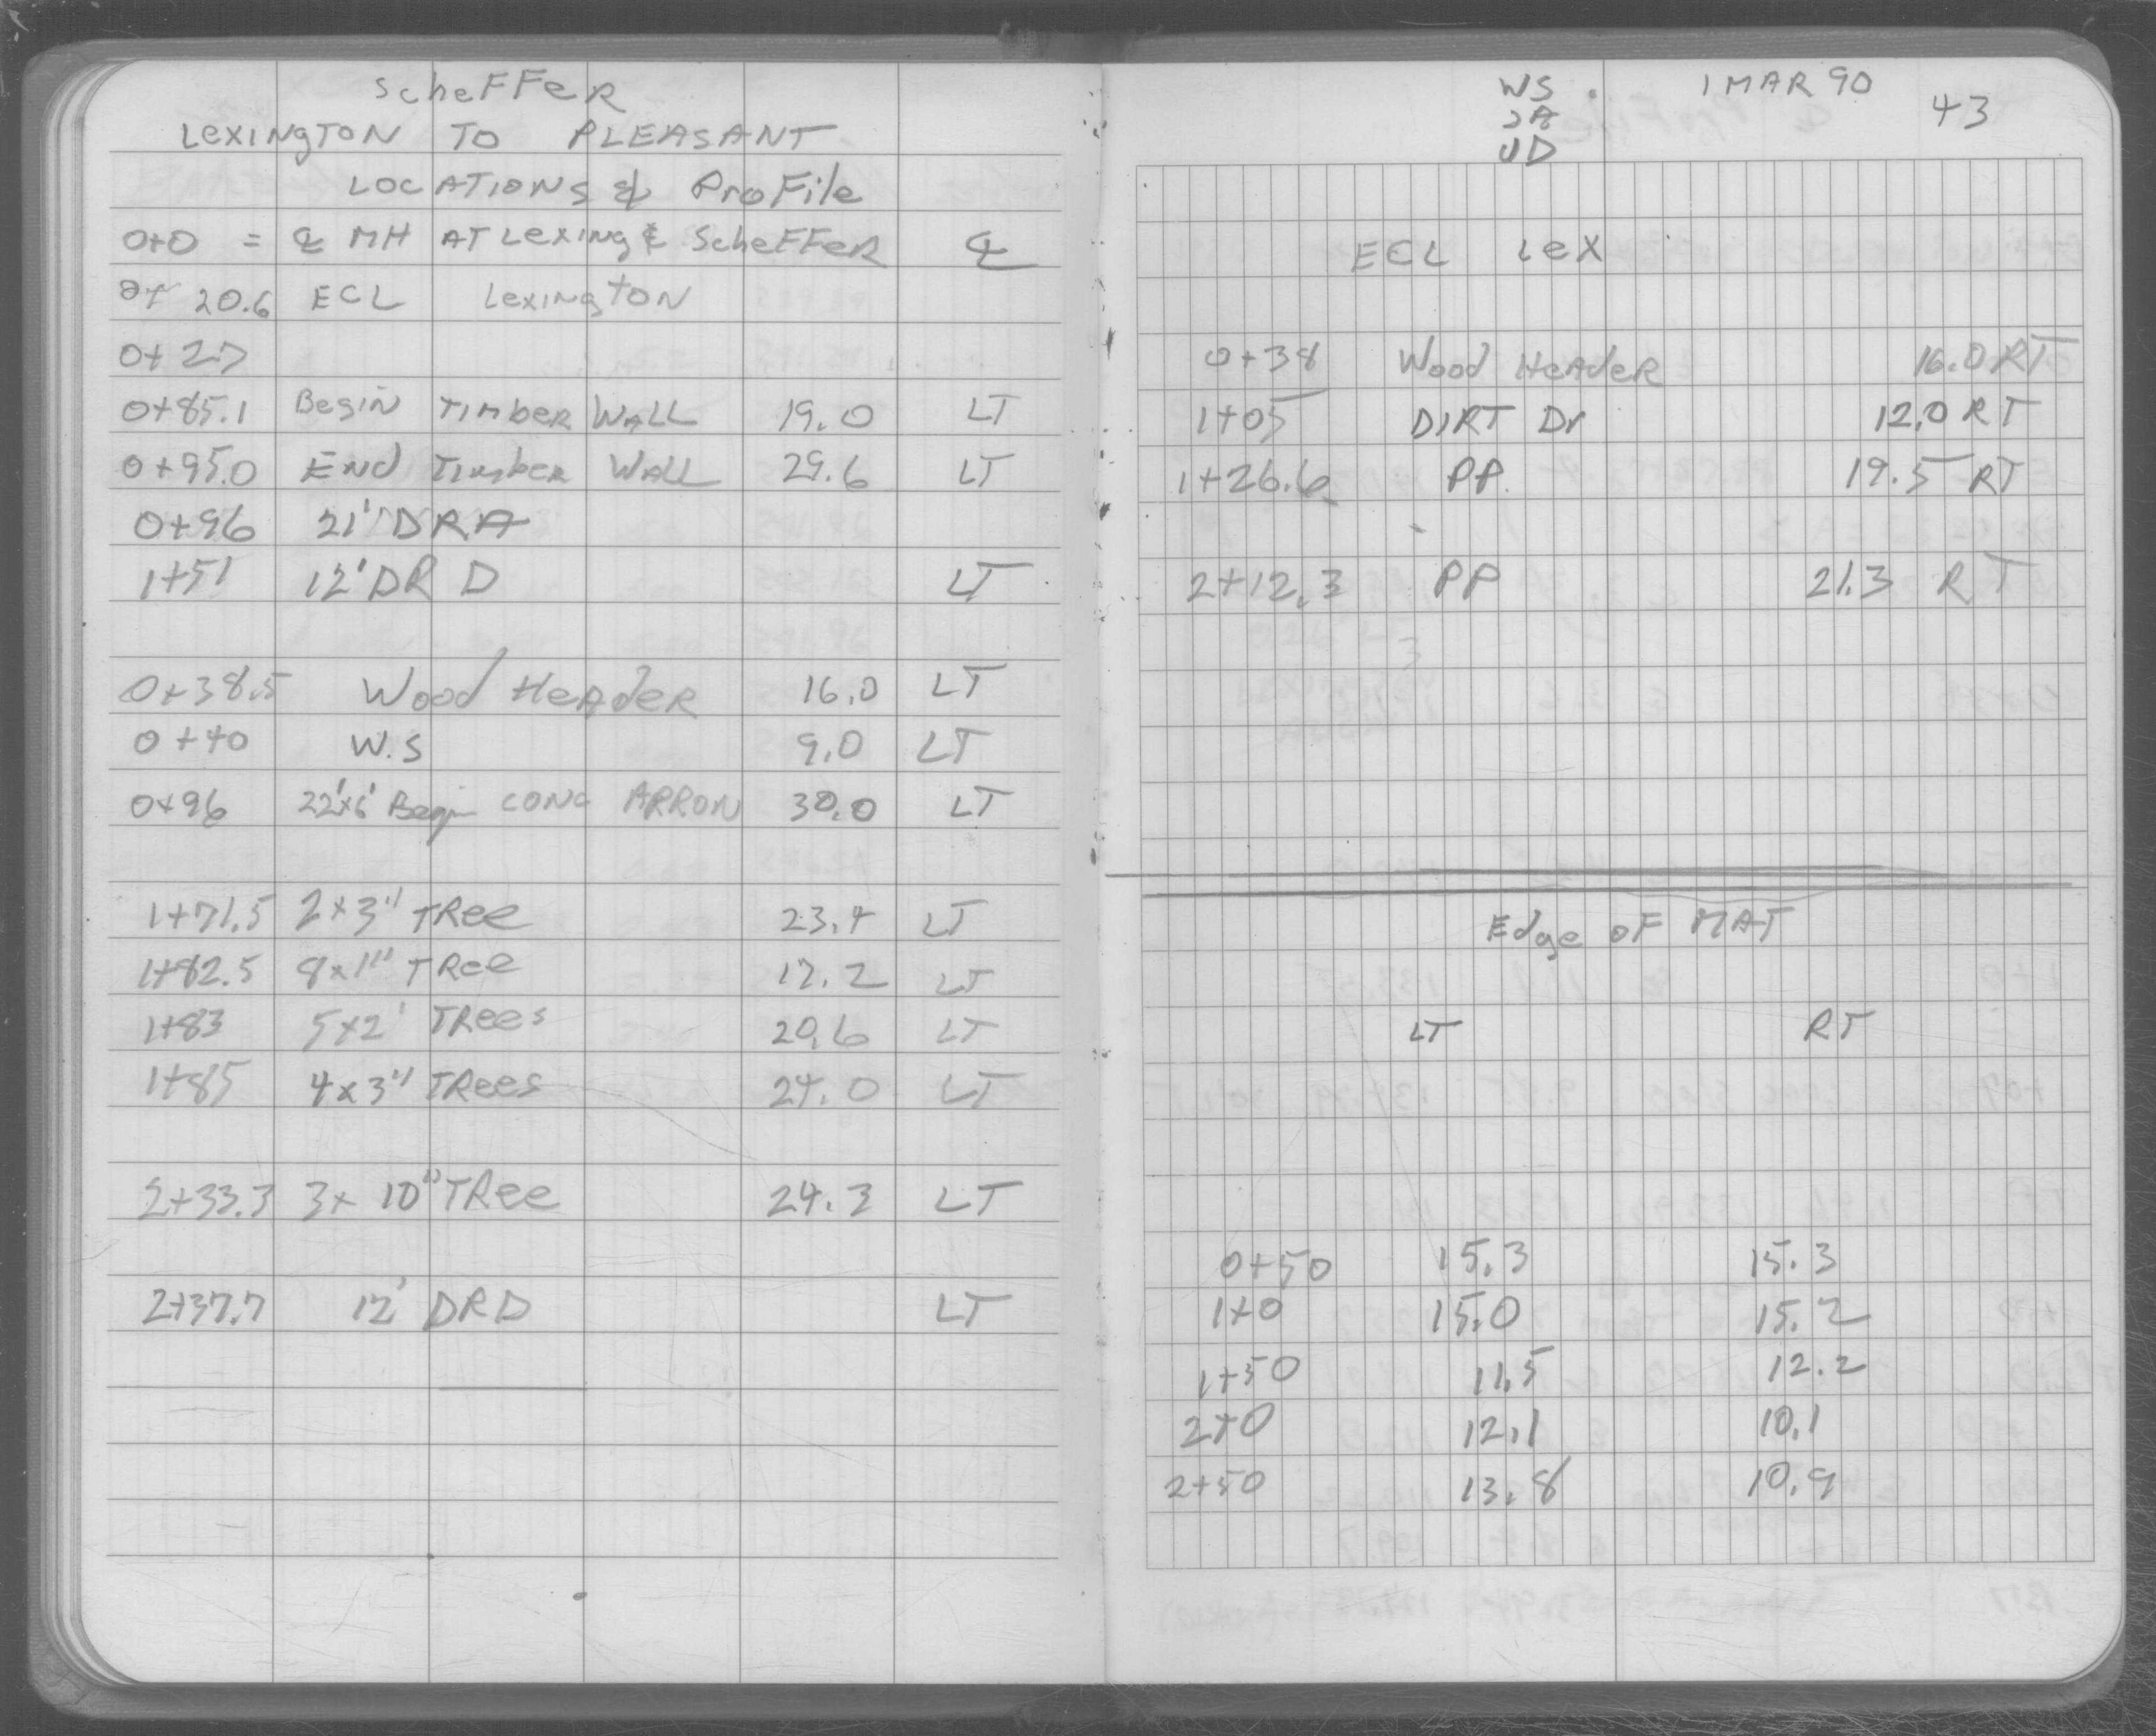 Scheffer
Lexington TO PLEASANT
LOCATIONS & Profile
0+0 = ℄ MH AT Lexing & Scheffer ℄
0+20.6 ECL Lexington
0+27
0+85.1 Begin Timber WALL 19.0 LT
0+95.0 End Timber WALL 29.6 LT
0+96 21' DRA
1+51 12' DR D LT
0+38.5 Wood Header 16.0 LT
0+40 W.S 9.0 LT
0+96 22'x6' Begin CONC APRON 30.0 LT
1+71.5 2x3" TRee 23.4 LT
1+82.5 8x1" TRee 17.2 LT
1+83 5x2' TRees 20.6 LT
1+85 4x3" TRees 24.0 LT
2+33.3 3x 10" TRee 24.3 LT
2+37.7 12' DRD LT
WS 1 MAR 90
JA 43
JD
ECL Lex
0+38 Wood Header 16.0 RT
1+05 DIRT Dr 12.0 RT
1+26.6 PP. 19.5 RT
2+12.3 PP 21.3 RT
Edge OF MAT
LT RT
0+50 15.3 15.3
1+0 15.0 15.2
1+50 11.5 12.2
2+0 12.1 10.1
2+50 13.8 10.9